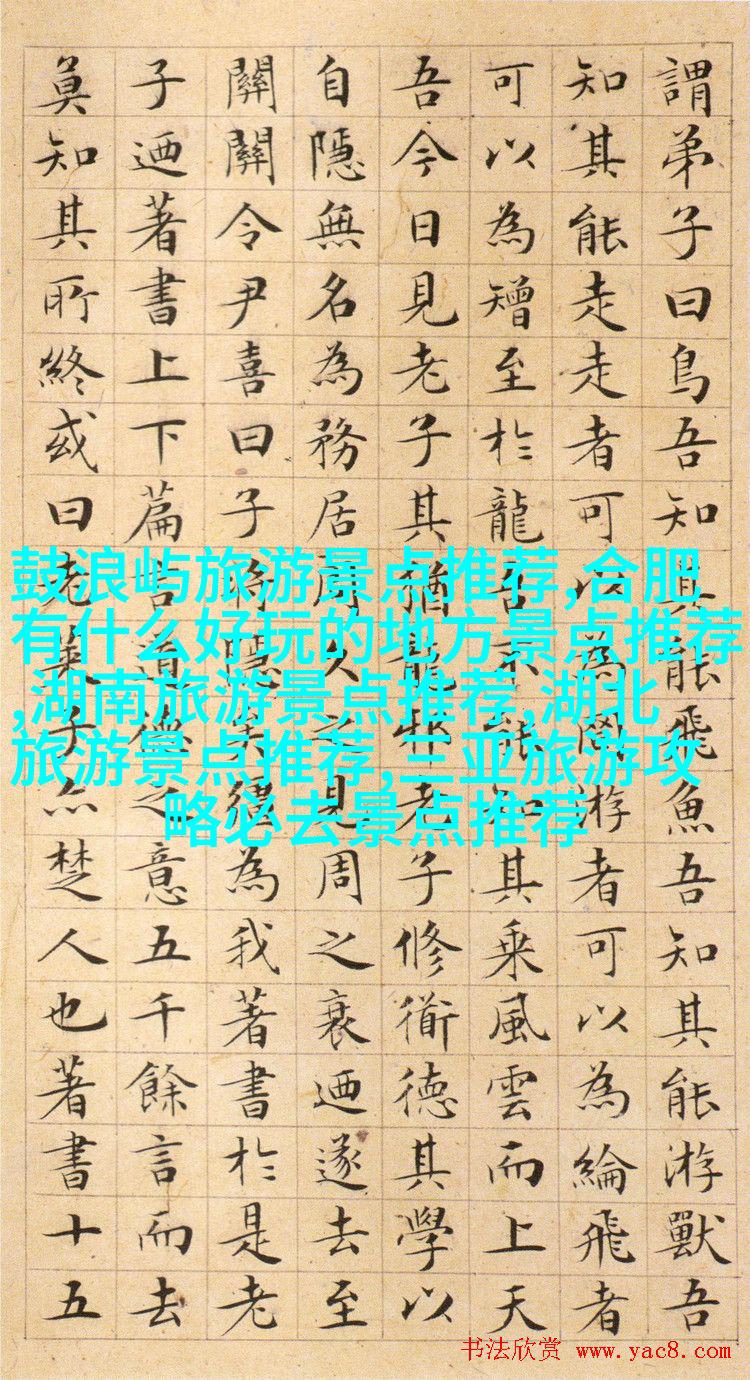 謂弟子曰鳥吾知其能飛魚吾知其能游獸吾
知其能走走者可以為罔游者可以為綸飛者
可以為矰至於龍吾不能知其乗風雲而上天
吾今日見老子其猶龍邪老子修衜德其學以
自隱無名為務居周久之見周之衰迺遂去至
關關令尹喜曰子將隱矣彊為我著書於是老
子迺著書上下篇言道德之意五千餘言而去
莫知其所終或曰老萊子亦楚人也著書十五
鼓浪屿旅游景点推荐,合肥
有什么好玩的地方景点推荐
,湖南旅游景点推荐,湖北
旅游景点推荐,三亚旅游攻
略必去景点推荐
书法欣赏 www.yac8.com